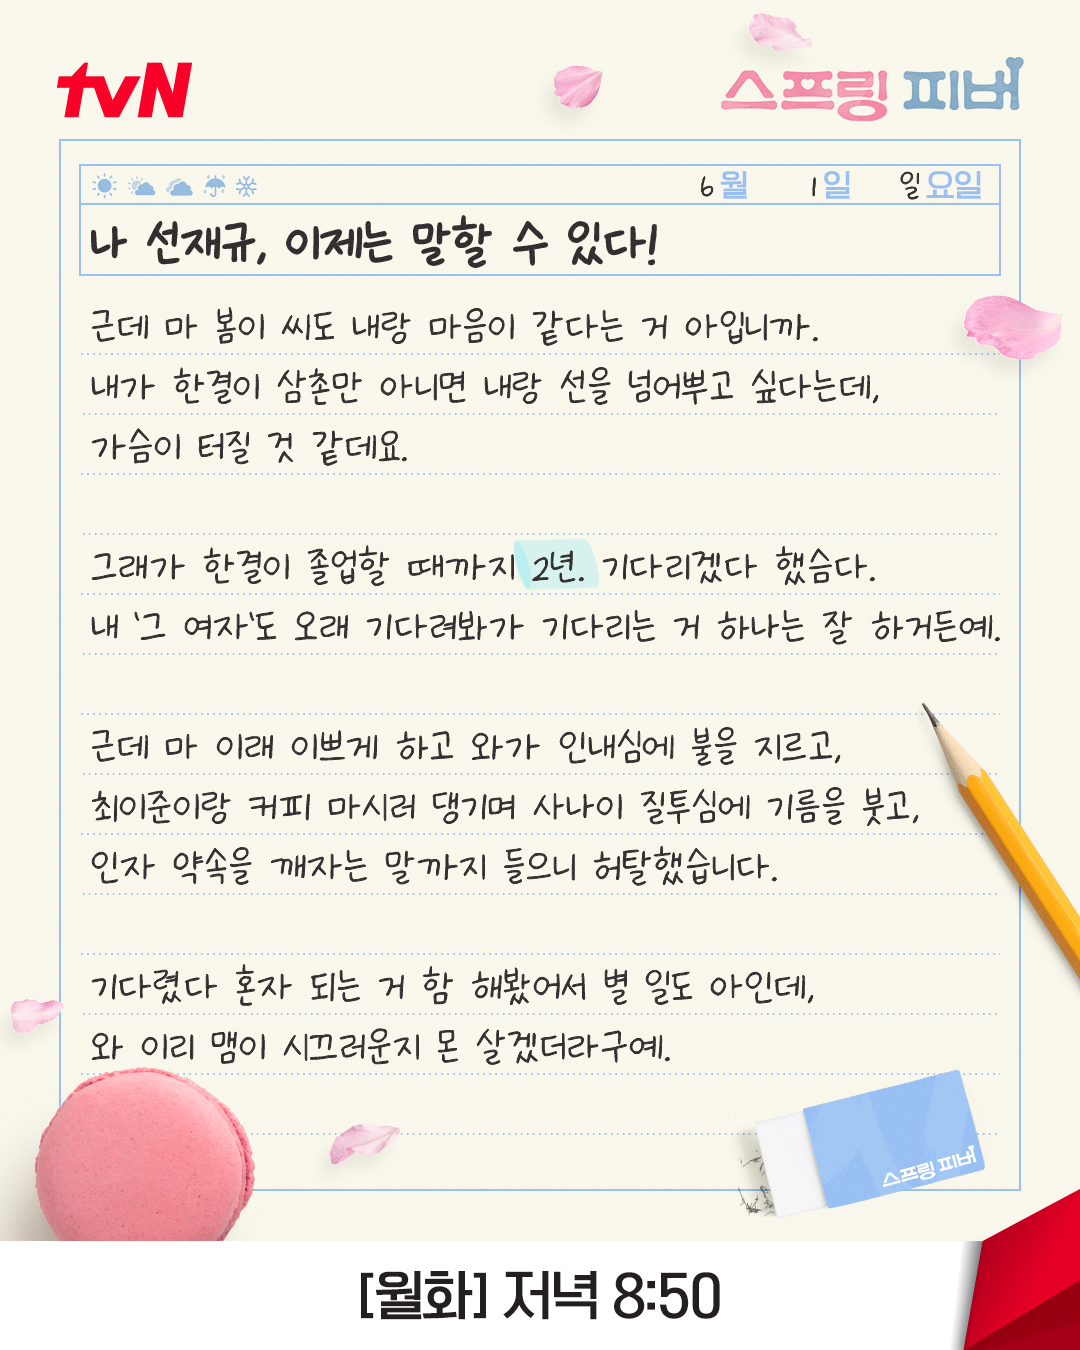 tvN
스프링 피버
6월 1일 일요일
나 선재규, 이제는 말할 수 있다!
근데 마 봄이 씨도 내랑 마음이 같다는 거 아입니까.
내가 한결이 삼촌만 아니면 내랑 선을 넘어뿌고 싶다는데,
가슴이 터질 것 같데요.
그래가 한결이 졸업할 때까지 2년. 기다리겠다 했슴다.
내 '그 여자'도 오래 기다려봐가 기다리는 거 하나는 잘 하거든예.
근데 마 이래 이쁘게 하고 와가 인내심에 불을 지르고,
최이준이랑 커피 마시러 댕기며 사나이 질투심에 기름을 붓고,
인자 약속을 깨자는 말까지 들으니 허탈했습니다.
기다렸다 혼자 되는 거 함 해봤어서 별 일도 아인데,
와 이리 맴이 시끄러운지 몬 살겠더라구예.
스프링 피버
[월화] 저녁 8:50